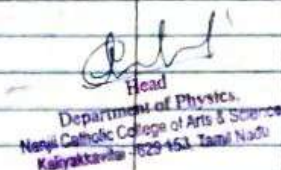 Head
Department of Physics,
Nanjil Catholic College of Arts & Science
Kaliyakkavilai - 629 153, Tamil Nadu